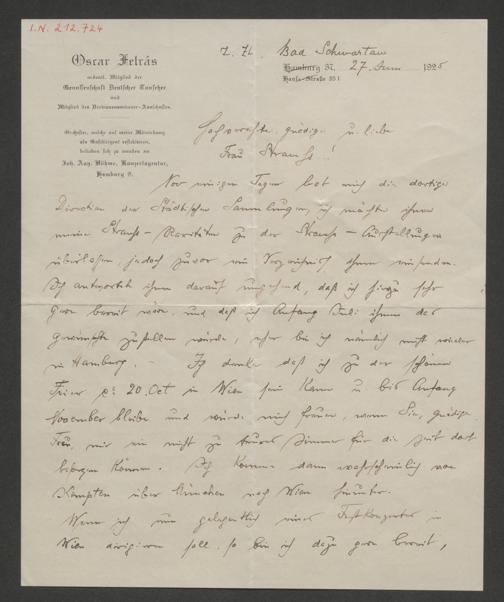 I.N. 212.724
Oscar Fetrás
ordentl. Mitglied der
Genossenschaft Deutscher Tonsetzer
und
Mitglied des Vertrauensmänner-Ausschusses.
Orchester, welche auf meine Mitwirkung
als Gastdirigent reflektieren,
belieben sich zu wenden an
Joh. Aug. Böhme, Konzertagentur,
Hamburg 8.
z. Zt. Bad Schwartau
Hamburg 37, 27. Juni 1925
Hansa-Straße 35 I
Hochverehrte, gnädige u. liebe
Frau Strauss!
Vor einigen Tagen bat mich die dortige
Direction der Städtischen Sammlungen, ich möchte ihnen
meine Strauss-Raritäten zu der Strauss-Ausstellung
überlassen, jedoch zuvor ein Verzeichniß ihnen einsenden.
Ich antwortete ihnen darauf umgehend, daß ich hierzu sehr
gern bereit wäre, und daß ich Anfang Juli ihnen das
gewünschte zustellen würde, eher bin ich nämlich nicht wieder
in Hamburg. - Ich denke daß ich zu der schönen
Feier 20. Oct in Wien sein kann u bis Anfang
November bleibe und würde mich freuen, wenn Sie, gnädige
Frau, mir ein nicht zu teures Zimmer für die Zeit dort
besorgen können. Ich komme dann wahrscheinlich von
Kempten über München nach Wien hinunter.
Wenn ich nun gelegentlich eines Festkonzertes in
Wien dirigieren soll, so bin ich dazu gern bereit,